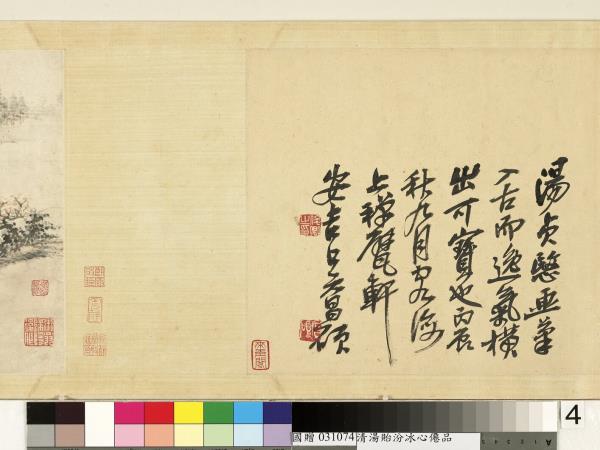 湯貞愍畫筆
入古而逸氣橫
出可寶也丙辰
秋九月客海
上禪甓軒
安吉吳昌碩
4
國贈 031074清湯貽汾冰心僊品